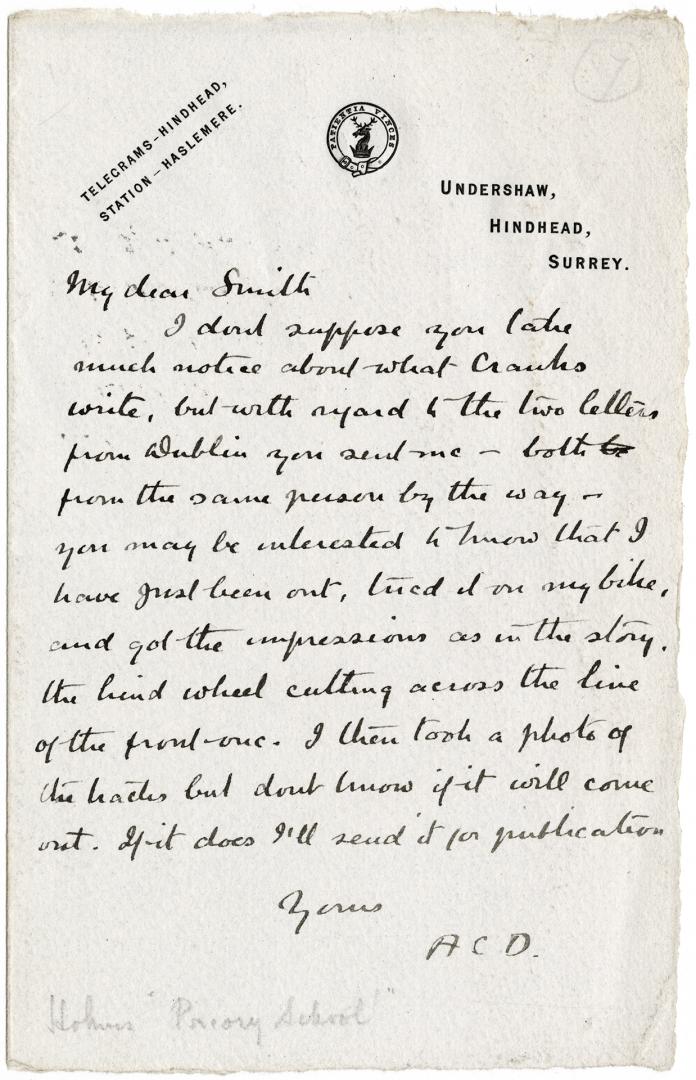 7
TELEGRAMS-HINDHEAD,
STATION-HASLEMERE.
PATIENTIA VINCES
UNDERSHAW,
HINDHEAD,
SURREY.
My dear Smith
I dont suppose you take
much notice about what Cranks
write, but with regard to the two letters
from Dublin you sent me - both
from the same person by the way -
you may be interested to know that I
have just been out, tried it on my bike,
and got the impressions as in the story.
the hind wheel cutting across the line
of the front one. I then took a photo of
the tracks but dont know if it will come
out. If it does I'll send it for publication
Yours
A C D.
Holmes "Priory School"